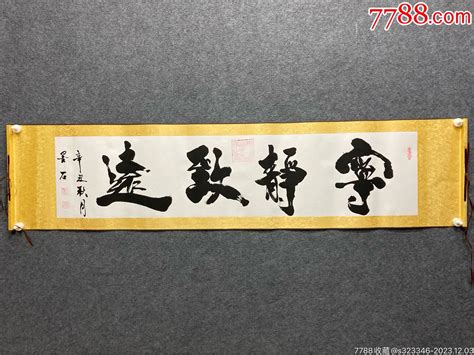 7788.com
寧靜致遠
辛丑秋月
墨石
7788收藏@s323346-2023.12.03